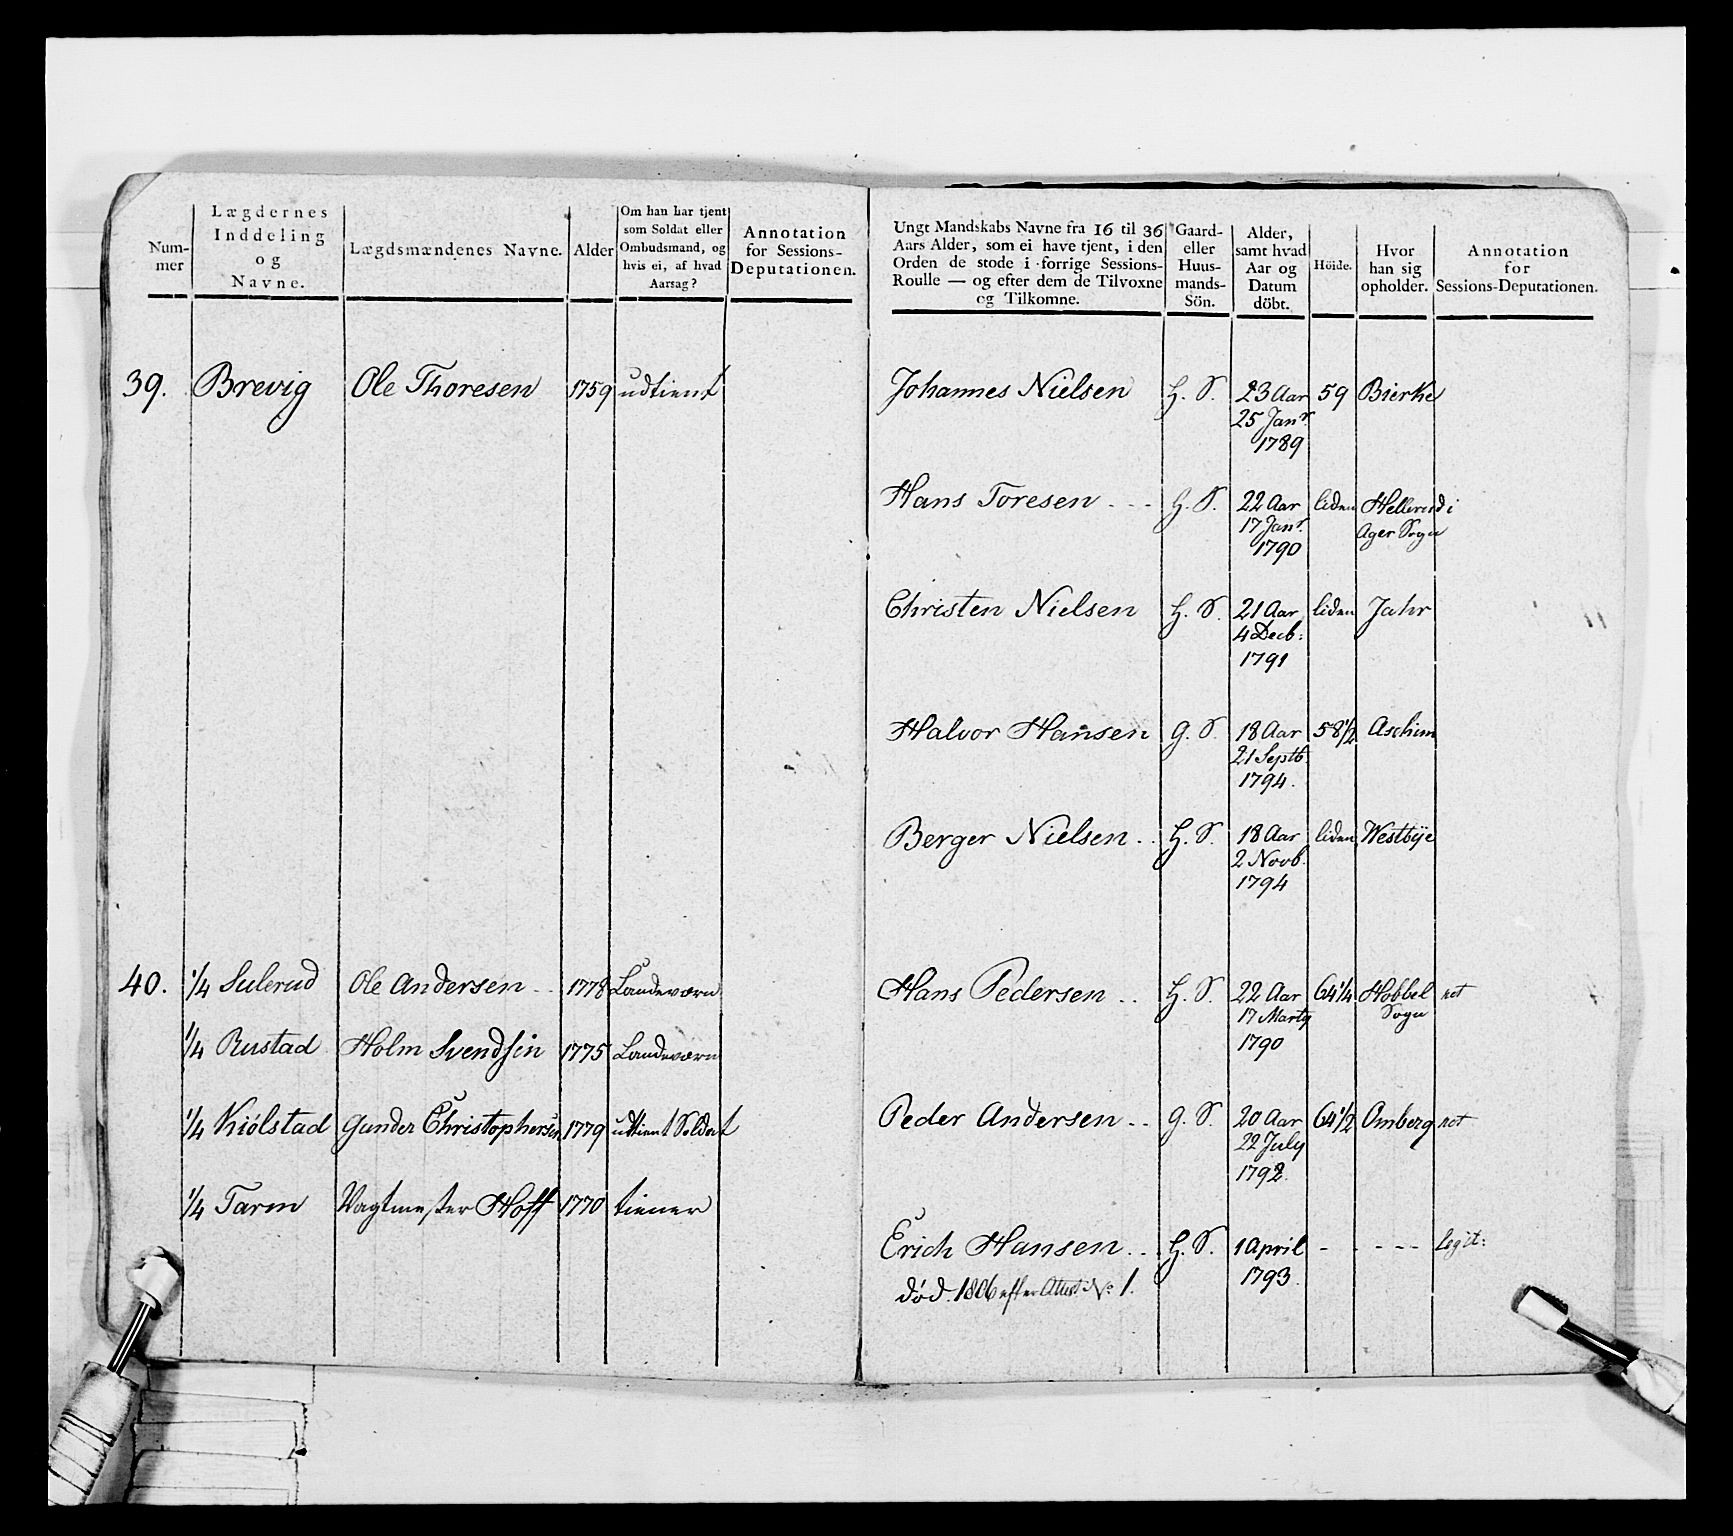 Num-
mer
Lægdernes
Inddeling
og
Navne.
Lægdsmændenes Navne.
Alder
Om han har tjent
som Soldat eller
Ombudsmand, og
hvis ei, af hvad
Aarsag?
Annotation
for Sessions-
Deputationen.
39. Brevig Ole Thoresen 1759 udtient
40. 1/4 Sulerud Ole Andersen 1778 Landeværn
1/4 Rustad Holm Svendsen 1775 Landeværn
1/4 Kiölstad Gunder Christophersen 1779 udtient Soldat
1/4 Tarm Vagtmester Hoff 1770 tiener
Ungt Mandskabs Navne fra 16 til 36
Aars Alder, som ei have tjent, i den
Orden de stode i forrige Sessions-
Roulle — og efter dem de Tilvoxne
og Tilkomne.
Gaard-
eller
Huus-
mands-
Sön.
Alder,
samt hvad
Aar og
Datum
döbt.
Höide.
Hvor
han sig
opholder.
Annotation
for
Sessions-Deputationen.
Johannes Nielsen H. S. 23 Aar 59 Bierke
25 Janr.
1789
Hans Toresen - - - H. S. 22 Aar liden Hellerud i
17 Janr. Ager Sogn
1790
Christen Nielsen H. S. 21 Aar liden Jahr
4 Decb:
1791
Halvor Hansen G. S. 18 Aar 58 1/2 Aschim
21 Septb.
1794.
Berger Nielsen . . H. S. 18 Aar liden Westbÿe
2 Novb.
1794
Hans Pedersen . . H. S. 22 Aar 64 1/4 Hobbel not
17 Marty Sogn
1790
Peder Andersen . . G. S. 20 Aar 64 1/2 Omberg not
22 July
1792.
Erich Hansen . . . H. S. 1 April - - - - - Legit:
död. 1806 efter Attest No. 1. 1793.